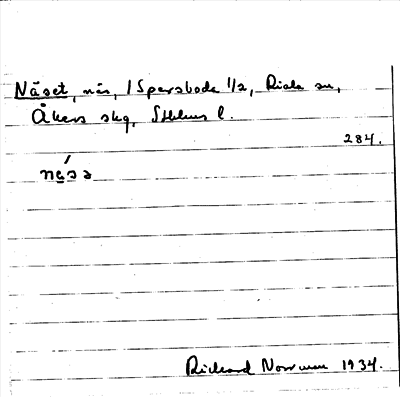 Näset, näs, i Spersboda 1/2, Riala sn,
Åkers skg, Sthlms l.
284.
nesa
Richard Norrman 1934.